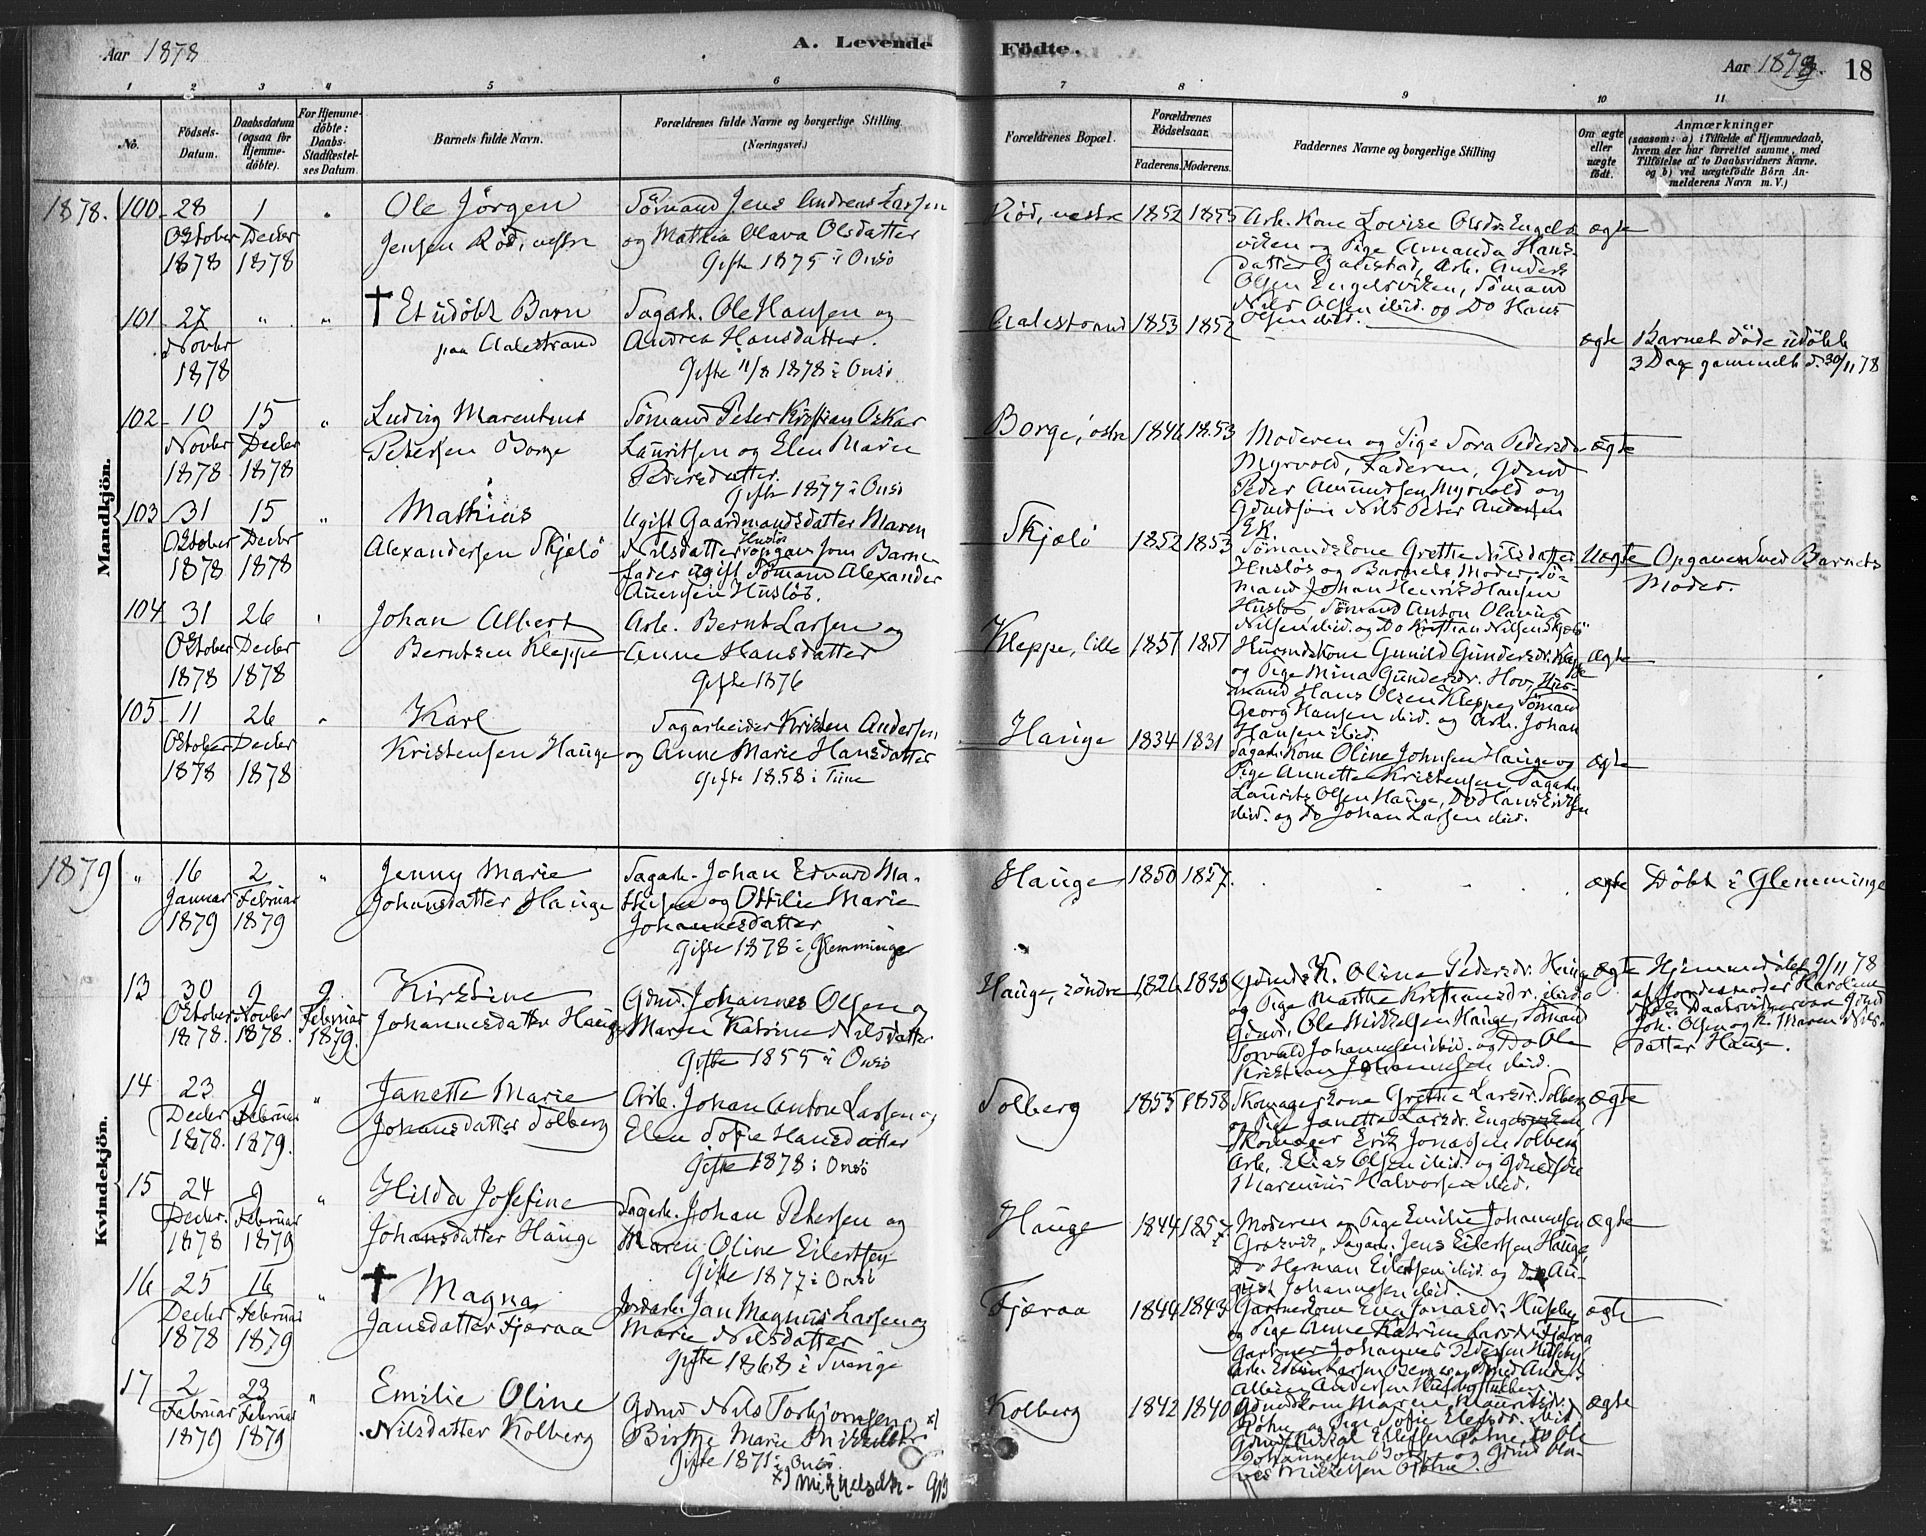 Aar 1878
A. Levende
Födte.
Aar 1879. 18
1 2 3 4 5 6 7 8 9 10 11
No.
Födsels-Datum.
Daabsdatum (ogsaa for Hjemmedöbte).
For Hjemmedöbte: Daabs-Stadfæstelses Datum.
Barnets fulde Navn.
Forældrenes fulde Navne og borgerlige Stilling (Næringsvei.)
Forældrenes Bopæl.
Forældrenes Födselsaar.
Faderens. Moderens.
Faddernes Navne og borgerlige Stilling
Om ægte eller uægte födt.
Anmærkninger
(saasom: a) i Tilfælde af Hjemmedaab, hvem der har forrettet samme, med Tilföielse af to Daabsvidners Navne. og b) ved uægtefödte Börn Anmelderens Navn m. V.)
Mandkjön.
1878.
100 28 Oktober 1878
1 Decbr 1878
Ole Jörgen
Jensen Röd, vestre
Sömand Jens Andreas Larsen
og Mathea Olava Olsdatter
Gifte 1875 i Onsö
Röd, vestre 1852 1855
Arb. Kone Lovise Olsdr. Engels-
viken og Pige Amanda Hans-
datter Arb. Anders
Olsen Engelsviken, Sömand
Nils Olsen ibid. og Do Hans
Olsen ibid.
ægte
101 27 Novbr 1878
† Et udöbt Barn
paa Aalestrand
Sagarb. Ole Hansen og
Andrea Hansdatter.
Gifte 11/8 1878 i Onsö
Aalestrand 1853 1852
ægte
Barnet döde udöbt
3 Dag gammelt d. 30/11 78
102 10 Novbr 1878
15 Decbr 1878
Ludvig Marentius
Petersen Borge
Sömand Peter Kristian Oskar
Lauritsen og Elen Marie
Pedersdatter.
Gifte 1877 i Onsö
Borge, östre 1846 1853
Moderen og Pige Tora Pedersdr
Myrvold, Faderen, Gdmd
Peder Amundsen Myrvold og
Gdmdsön Nils Peter Andersen
Ek.
ægte
103 31 Oktober 1878
15 Decbr 1878
Mathias
Alexandersen Skjælö
Ugift Gaardmandsdatter Maren
Nilsdatter Huslös opgav som Barne-
fader ugift Sömand Alexander
Huslös.
Skjælö 1852 1853
Sömandskone Grethe Nilsdatter
Huslös og Barnets Moder, Sö-
mand Johan Henrik Hansen
Huslös, Sömand Anton Olavus
Nilsen ibid. og Do Kristian Nilsen Skjælö
Uægte
Opgaven ved Barnets
Moder.
104 31 Oktober 1878
26 Decbr 1878
Johan Albert
Berntsen Kleppe
Arb. Bernt Larsen og
Anne Hansdatter
Gifte 1876
Kleppe, lille 1851 1851
Husmdskone Gunild Gundersdr. Kleppe
og Pige Mina Gundersdr. Hov, Hus-
mand Hans Olsen Kleppe, Sömand
Georg Hansen ibid. og Arb. Johan
Hansen ibid.
ægte
105 11 Oktober 1878
26 Decbr 1878
Karl
Kristensen Hauge
Sagarbeider Kristen Andersen
og Anne Marie Hansdatter
Gifte 1858 i Tune
Hauge 1834 1831
Sagarb. Kone Oline Johnsen Hauge og
Pige Annette Kristensen, Sagarb.
Laurits Olsen Hauge, Do Hans Eriksen
ibid. og Do Johan Larsen ibid.
ægte
1879
Kvindekjön.
" 16 Januar 1879
2 Februar 1879
Jenny Marie
Johansdatter Hauge
Sagarb. Johan Edvard Ma-
thisen og Ottilie Marie
Johannesdatter
Gifte 1878 i Glemminge
Hauge 1850 1857.
ægte
Döbt i Glemminge
13 30 Oktober 1878.
9 Novbr 1878.
9 Februar 1879.
Kirstine
Johannesdatter Hauge
Gdmd. Johannes Olsen og
Maren Katrine Nilsdatter
Gifte 1855 i Onsö
Hauge, söndre 1826 1833
Gdmds K. Oline Pedersdr. Hauge
og Pige Marthe Kristiansdr. ibid.
Gdmd. Ole Mikkelsen Hauge, Sömand
Torvald Johannesen ibid. og Do Ole
Kristian Johannesen ibid.
ægte
Hjemmedöbt 9/11 78
af Jordemoder Karoline
Daabsvidner var Gdmd
Joh. Olsen og K. Maren Nils-
datter Hauge.
14 23 Decbr 1878.
9 Februar 1879.
Janette Marie
Johansdatter Solberg
Arb. Johan Anton Larsen og
Elen Sofie Hansdatter
Gifte 1878 i Onsö
Solberg 1855 1858
Skomagerkone Grethe Larsdr. Solberg
og Pige Janette Larsdr. Engelsviken
Skomager Erik Jonassen Solberg
Arb. Elias Olsen ibid. og Gdmdsön
Marenius Halvorsen ibid.
ægte
15 24 Decbr. 1878
9 Februar 1879
Hilda Josefine
Johansdatter Hauge
Sagarb. Johan Petersen og
Maren Oline Eilertsen
Gifte 1877 i Onsö
Hauge 1844 1857.
Moderen og Pige Emilie Johannesen
Græsvik, Sagarb. Jens Eilertsen Hauge,
Do Herman Eilertsen ibid. og Do Au-
gust Johannesen ibid.
ægte
16 25 Decbr 1878
16 Februar 1879
† Magna
Jansdatter Fjæraa
Jordarb. Jan Magnus Larsen og
Marie Nilsdatter
Gifte 1868 i Sverige
Fjæraa 1844 1843
Gartnerkone Eva Jonasdr. Huseby
og Pige Anne Katrine Larsdr. Fjæraa
Gartner Johannes Pedersen Huseby
Arb. Edvin Larsen
ægte
17 2 Februar 1879
23 Februar 1879
Emilie Oline
Nilsdatter Kolberg
Gdmd Nils Torbjörnsen og
Birthe Marie x)
Gifte 1871 i Onsö.
x) Mikkelsdtr.
Kolberg 1842 1840
Gdmdskone Maren
og Pige Sofie
ægte